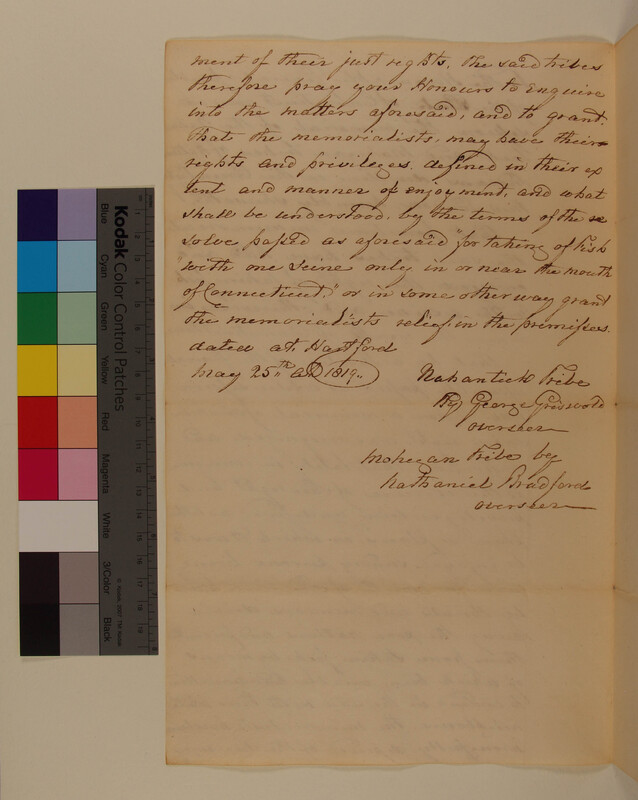 ment of their just rights, the said tribes
therefore pray your Honours to Enquire
into the matters aforesaid, and to grant
that the memorialists, may have their
rights and privileges. defined in their ex
tent and manner of enjoyment, and what
shall be understood. by the terms of the re
solve passed as aforesaid "for taking of Fish
"with one seine only in or near the mouth
of Connecticut," or in some other way grant
the memorialists relief in the premises.
dated at Hartford
May 25th AD 1819..
Nahantick Tribe
By George Griswold
overseer
Mohegan Tribe by
Nathaniel Bradford
overseer
Kodak Color Control Patches
Blue
Cyan
Green
Yellow
Red
Magenta
White
3/Color
Black